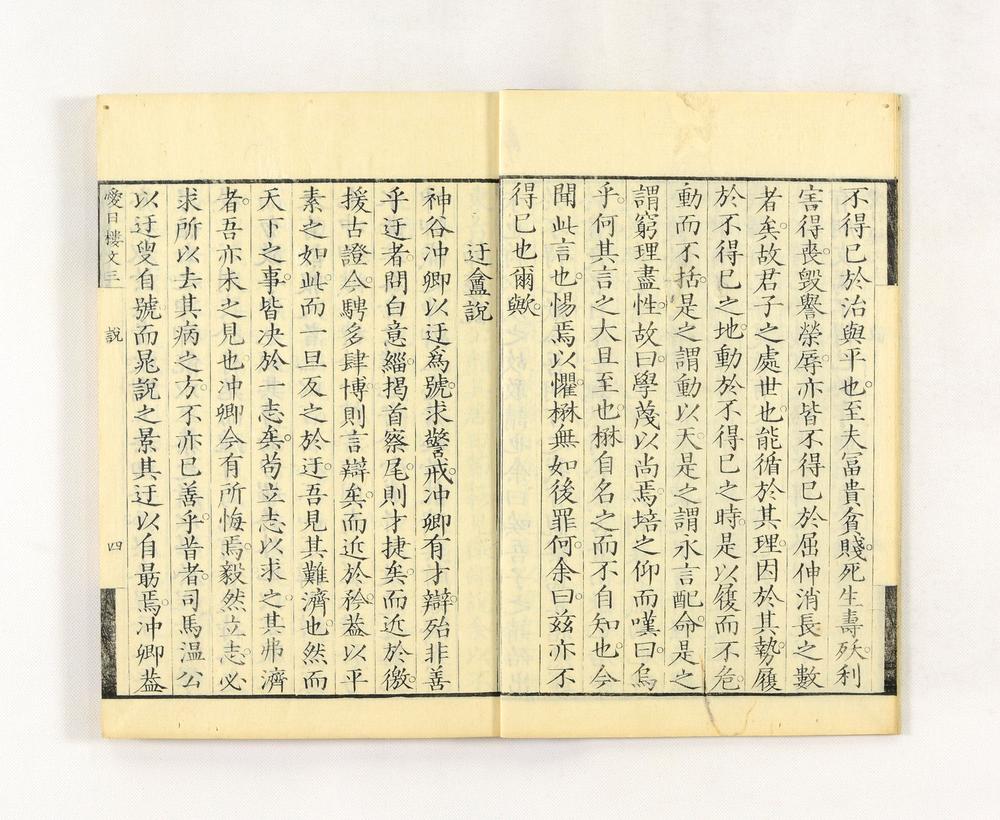 不得已於治與平也。至大冨貴貧賤。死生壽殀。利
害得喪。毀譽榮辱。亦皆不得已於屈伸消長之數
者矣。故君子之處世也。能循於其理。因於其勢。履
於不得已之地。動於不得已之時。是以履而不危。
動而不括。是之謂動以天。是之謂永言配命。是之
謂窮理盡性。故曰。學蔑以尚焉。培之仰而嘆曰。烏
乎。何其言之大且至也。楙自名之而不自知也。今
聞此言也。惕焉以懼。楙無如後罪何。余曰。茲亦不
得已也爾歟。
迂盦說
神谷冲卿以迂爲號。求警戒。冲卿有才辯。殆非善
乎迂者。問白意緇。揭首察尾。則才捷矣。而近於徼。
援古證今。騁多肆博。則言辯矣。而近於矜。葢以平
素之如此。而一旦反之於迂。吾見其難濟也。然而
天下之事。皆决於一志矣。苟立志以求之。其弗濟
者。吾亦未之見也。冲卿今有所悔焉。毅然立志。必
求所以去其病之方。不亦已善乎。昔者。司馬溫公
以迂叟自號。而晁說之景其迂以自勗焉。冲卿葢
愛日樓文三 說 四